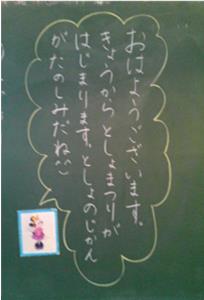 おはようございます。
きょうからとしょまつりが
はじまります。としょのじかん
がたのしみだね^^